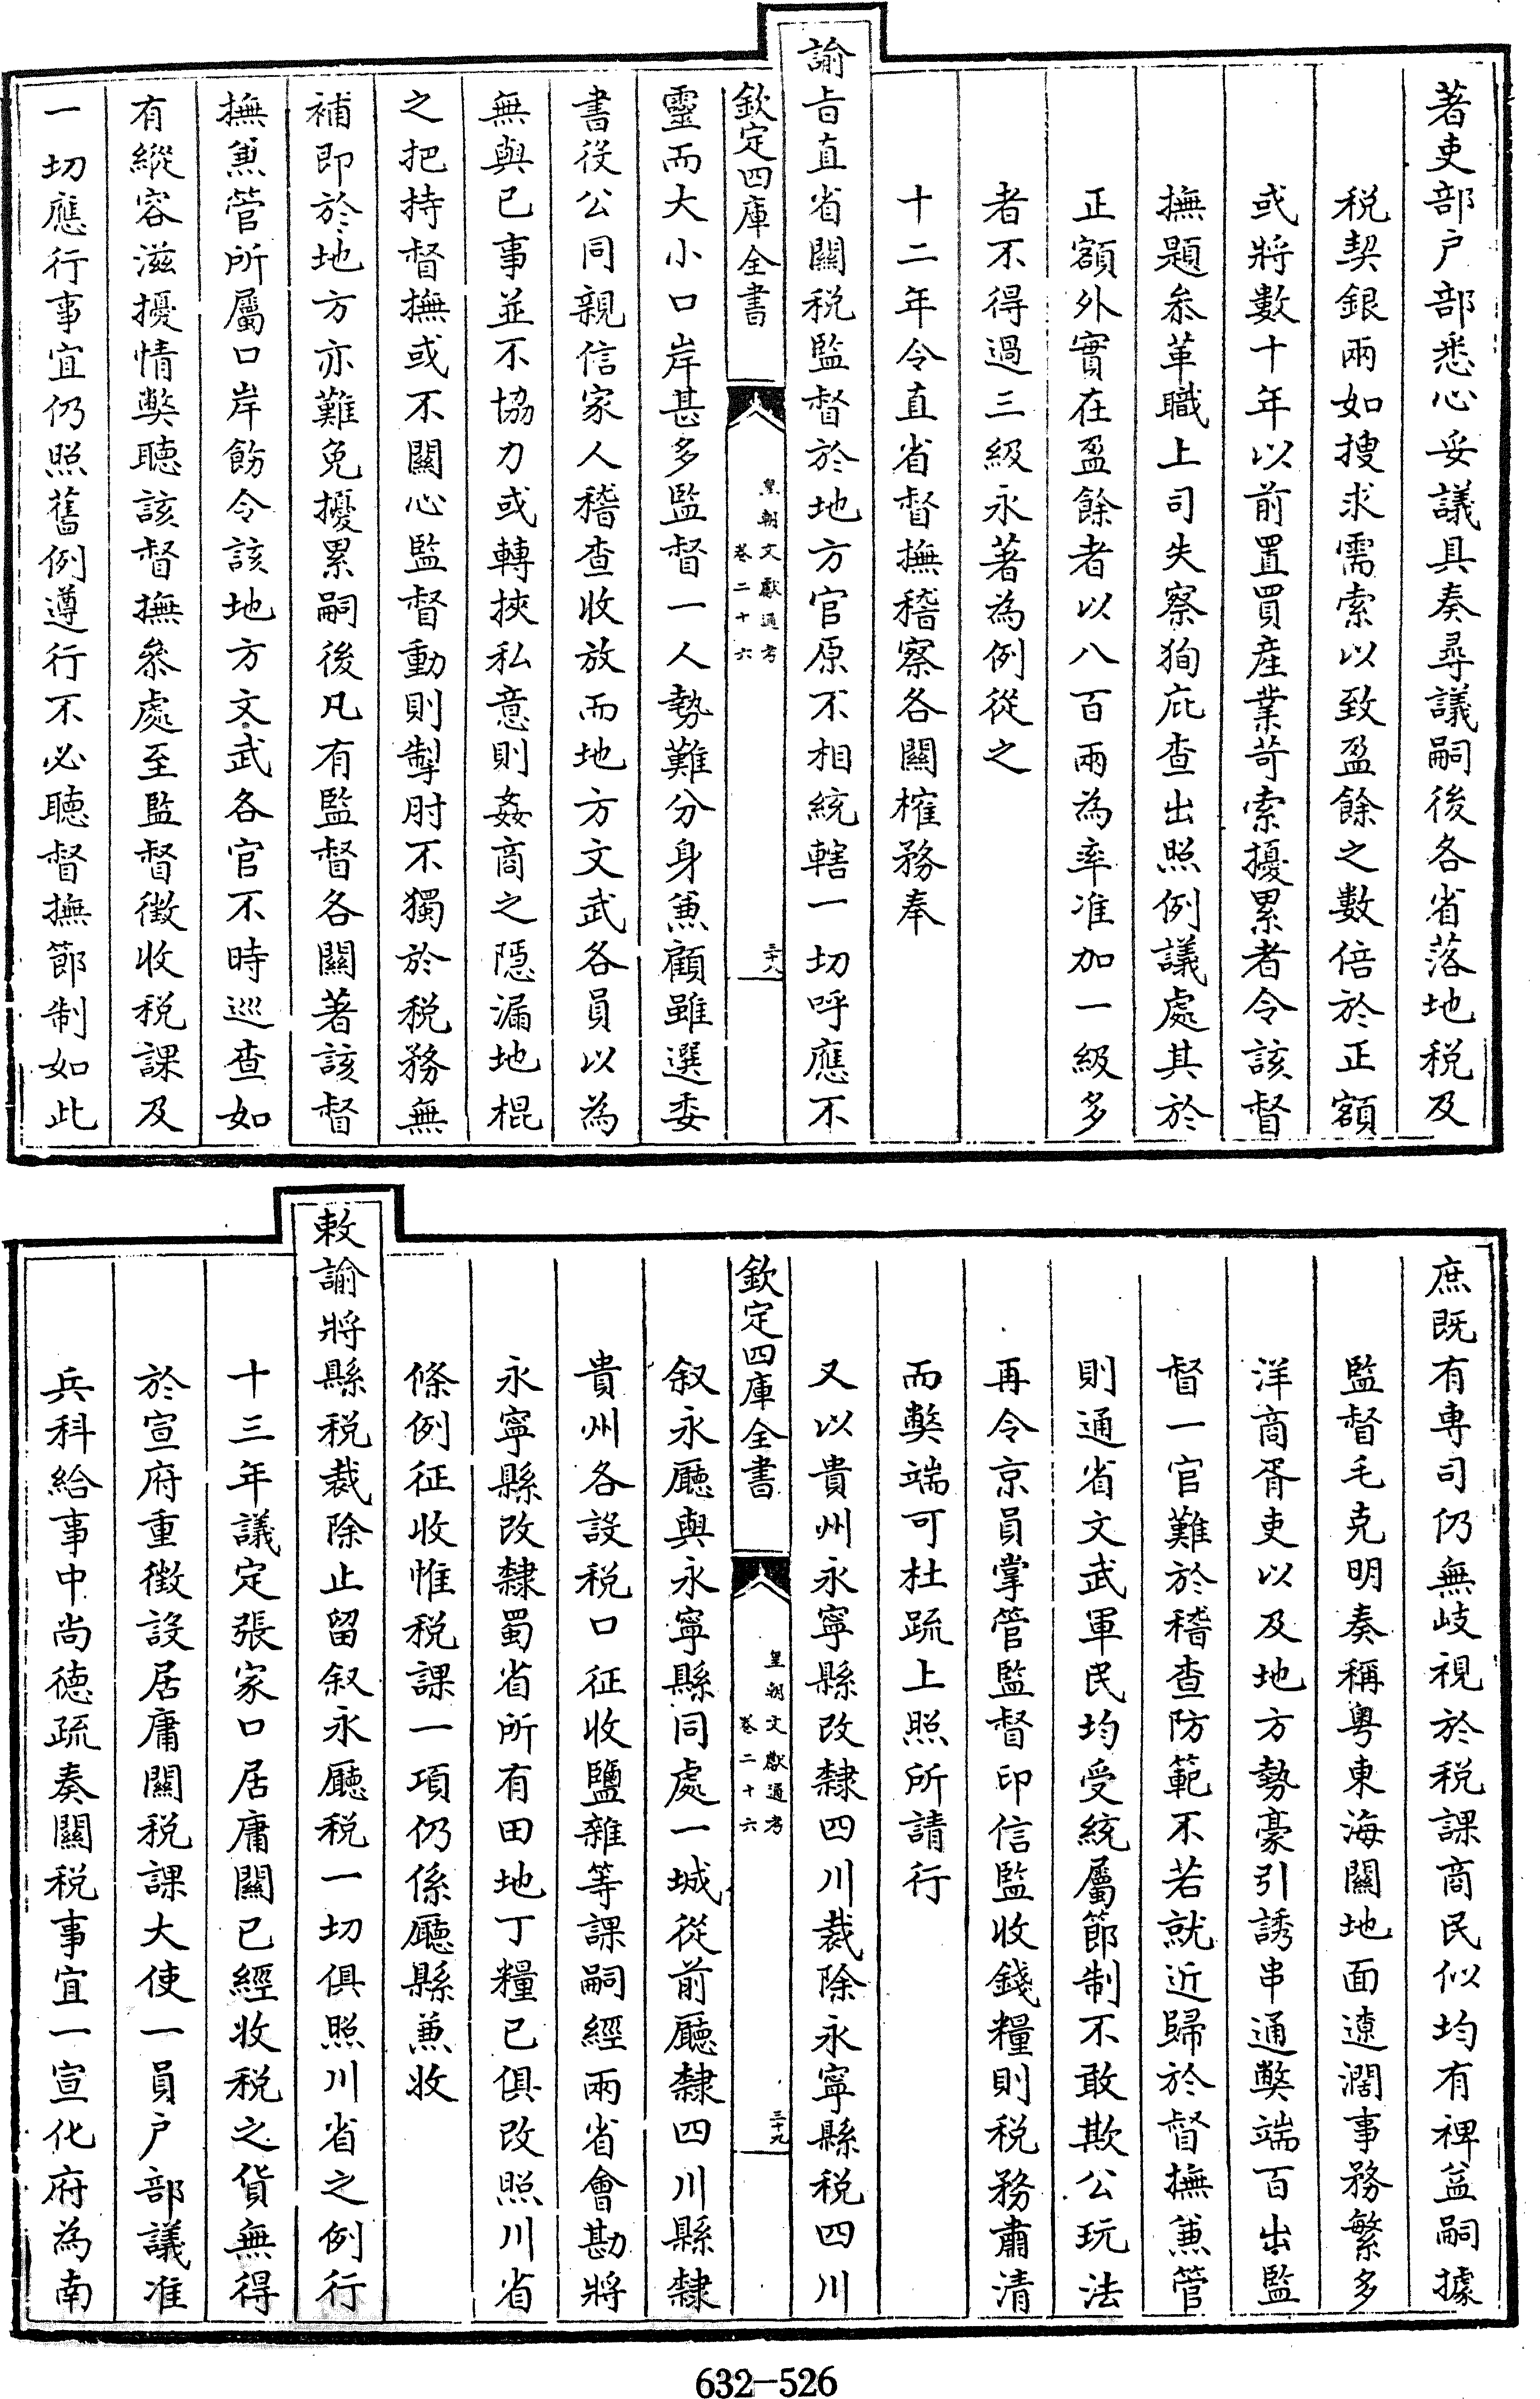 著吏部户部悉心妥議具奏尋議嗣後各省落地税及
税契銀兩如搜求需索以致盈餘之數倍於正額
或將數十年以前置買産業苛索擾累者令該督
撫題叅革職上司失察狥庇查出照例議處其於
正額外實在盈餘者以八百兩為率准加一級多
者不得過三級永著為例從之
十二年令直省督撫稽察各關榷務奉
諭旨直省關税監督於地方官原不相統轄一切呼應不
欽定四庫全書
皇朝文獻通考
卷二十六
三十八
靈而大小口岸甚多監督一人勢難分身兼顧雖選委
書役公同親信家人稽查收放而地方文武各員以為
無與已事並不協力或轉挾私意則姦商之隱漏地棍
之把持督撫或不關心監督動則掣肘不獨於税務無
補即於地方亦難免擾累嗣後凡有監督各關著該督
撫兼管所屬口岸飭令該地方文武各官不時巡查如
有縱容滋擾情弊聽該督撫叅處至監督徵收税課及
一切應行事宜仍照舊例遵行不必聽督撫節制如此
庶既有專司仍無歧視於税課商民似均有裨益嗣據
監督毛克明奏稱粤東海關地面遼濶事務繁多
洋商胥吏以及地方勢豪引誘串通弊端百出監
督一官難於稽查防範不若就近歸於督撫兼管
則通省文武軍民均受統屬節制不敢欺公玩法
再令京員掌管監督印信監收錢糧則税務肅清
而弊端可杜疏上照所請行
又以貴州永寧縣改隸四川裁除永寧縣税四川
欽定四庫全書
皇朝文獻通考
卷二十六
三十九
叙永廳與永寧縣同處一城從前廳隸四川縣隸
貴州各設税口征收鹽雜等課嗣經兩省會勘將
永寧縣改隸蜀省所有田地丁糧已俱改照川省
條例征收惟税課一項仍係廳縣兼收
敕諭將縣税裁除止留叙永廳税一切俱照川省之例行
十三年議定張家口居庸關已經收税之貨無得
於宣府重徵設居庸關税課大使一員户部議准
兵科給事中尚德疏奏關税事宜一宣化府為南
632-526